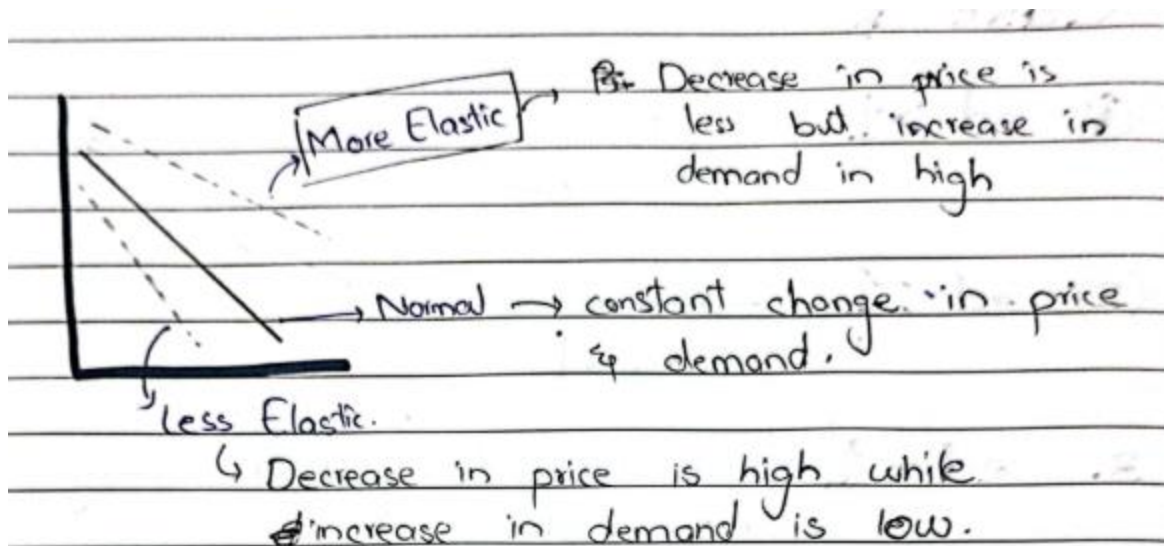 More Elastic
Decrease in price is
less but increase in
demand in high
Normal → constant change in price
& demand.
Less Elastic.
Decrease in price is high while
increase in demand is low.